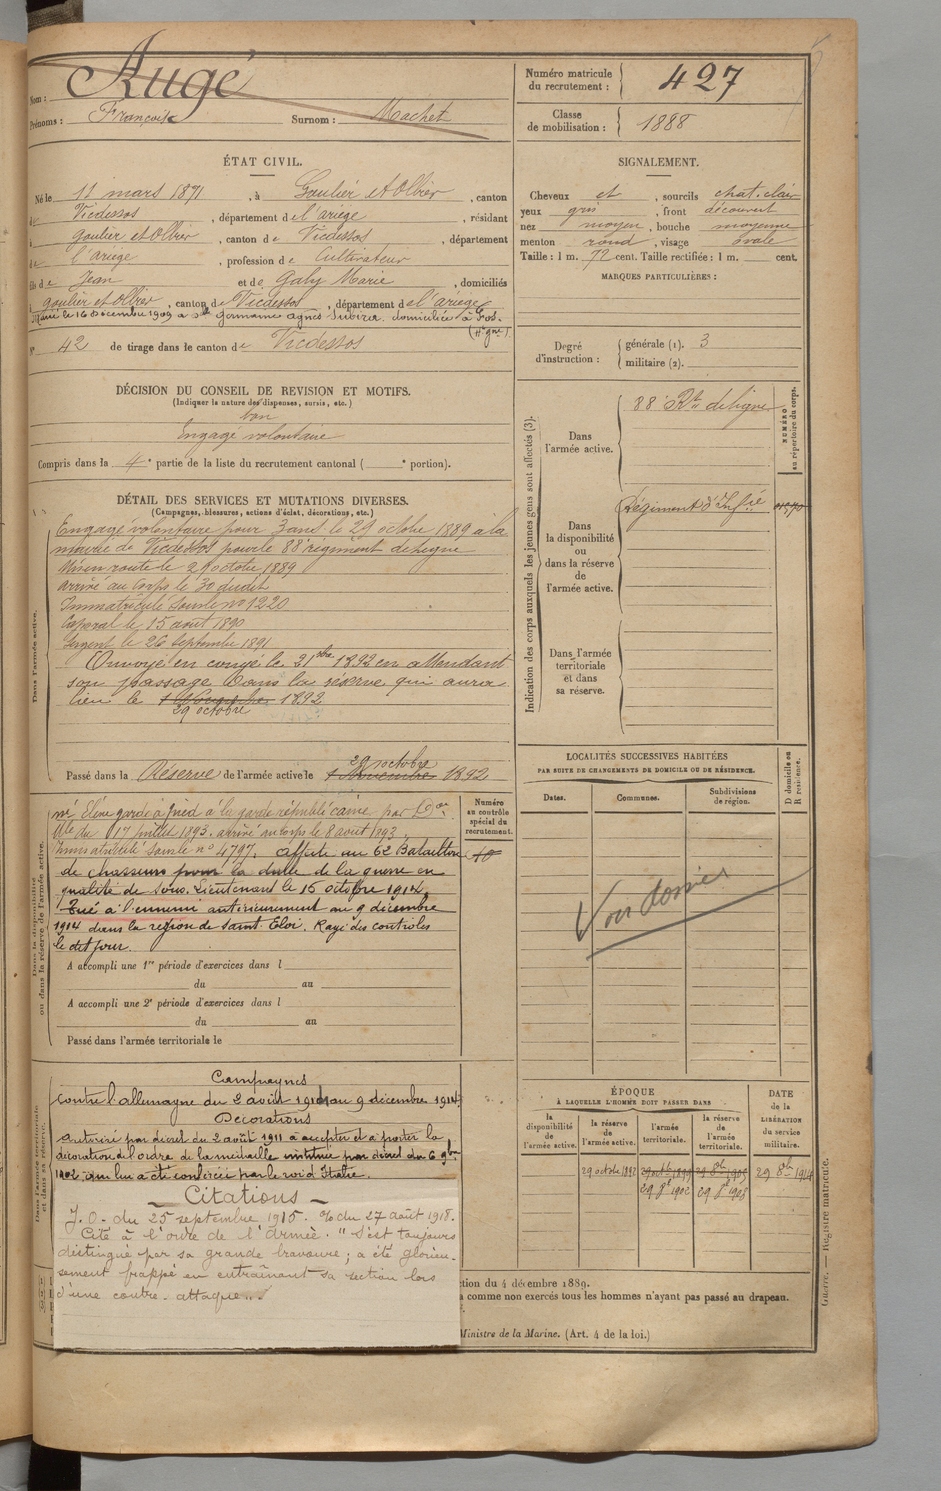 Nom : Augé
Prénoms : François Surnom : Machet
Numéro matricule du recrutement : 427
Classe de mobilisation : 1888
ÉTAT CIVIL.
Né le 11 mars 1871, à Goulier et Olbier, canton
de Vicdessos, département de l'ariège, résidant
à Goulier et Olbier, canton de Vicdessos, département
de l'ariège, profession de Cultivateur
fils de Jean et de Galy Marie, domiciliés
à Goulier et Olbier, canton de Vicdessos, département de l'ariège
Marié le 16 Décembre 1909 à Dlle Germaine Agnès Subira domiciliée à Fos.
(Hte Gne).
N° 42 de tirage dans le canton de Vicdessos
SIGNALEMENT.
Cheveux et, sourcils chat. clair
yeux gris, front découvert
nez moyen, bouche moyenne
menton rond, visage ovale
Taille : 1 m. 72 cent. Taille rectifiée : 1 m. cent.
MARQUES PARTICULIÈRES :
Degré d'instruction : générale (1). 3
militaire (2).
DÉCISION DU CONSEIL DE REVISION ET MOTIFS.
(Indiquer la nature des dispenses, sursis, etc.)
bon
Engagé volontaire
Compris dans la 4e partie de la liste du recrutement cantonal ( e portion).
DÉTAIL DES SERVICES ET MUTATIONS DIVERSES.
(Campagnes, blessures, actions d'éclat, décorations, etc.)
Dans l'armée active.
Engagé volontaire pour 3 ans le 29 octobre 1889 à la
mairie de Vicdessos pour le 88e régiment de ligne
Mis en route le 29 octobre 1889
arrivé au corps le 30 dudit
Immatriculé sous le no 1220
Caporal le 15 août 1890
Sergent le 26 septembre 1891
Envoyé en congé le 21 bre 1892 en attendant
son passage dans la réserve qui aura
lieu le 1 Novembre 1892
29 octobre
29 octobre
Passé dans la Réserve de l'armée active le 1 Novembre 1892
Indication des corps auxquels les jeunes gens sont affectés (3).
Dans l'armée active. 88e Rt de ligne
NUMÉRO au répertoire du corps.
Dans la disponibilité ou dans la réserve de l'armée active. Régiment d'Infie
Dans l'armée territoriale et dans sa réserve.
Dans la disponibilité ou dans la réserve de l'armée active.
né Elève garde à pied à la garde républicaine par Don
Mle du 17 juillet 1893, arrivé au corps le 8 août 1893.
Immatriculé sous le no 4797. Affecté au 62 Bataillon
de chasseurs pour la durée de la guerre en
qualité de sous-Lieutenant le 15 octobre 1914.
Tué à l'ennemi antérieurement au 9 décembre
1914 dans la région de Saint Eloi. Rayé des contrôles
le dit jour.
Numéro au contrôle spécial du recrutement.
10
A accompli une 1re période d'exercices dans l
du au
A accompli une 2e période d'exercices dans l
du au
Passé dans l'armée territoriale le
LOCALITÉS SUCCESSIVES HABITÉES
PAR SUITE DE CHANGEMENTS DE DOMICILE OU DE RÉSIDENCE.
Dates. Communes. Subdivisions de région. D domicile ou R résidence.
Voir dossier
Dans l'armée territoriale et dans sa réserve.
Campagnes
Contre l'allemagne du 2 août 1914 au 9 décembre 1914
Décorations
Autorisé par décret du 2 août 1911 à accepter et à porter la
décoration de l'ordre de la médaille instituée par décret du 6 9bre
1902 qui lui a été conférée par le roi d'Italie.
Citations
J. O. du 25 septembre 1915. % du 27 août 1918.
Cité à l'ordre de l'Armée. "S'est toujours
distingué par sa grande bravoure ; a été glorieu-
sement frappé en entraînant sa section lors
d'une contre-attaque..."
ÉPOQUE
À LAQUELLE L'HOMME DOIT PASSER DANS
la disponibilité de l'armée active. la réserve de l'armée active. l'armée territoriale. la réserve de l'armée territoriale. DATE de la LIBÉRATION du service militaire.
29 octobre 1892 29 octb 1899 29 8bre 1905 29 8bre 1914
29 8e 1902 29 8e 1908
ction du 4 décembre 1889.
a comme non exercés tous les hommes n'ayant pas passé au drapeau.
Ministre de la Marine. (Art. 4 de la loi.)
Guerre. — Registre matricule.